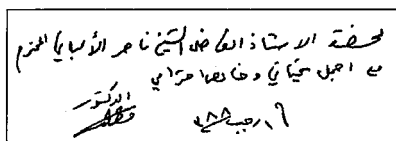 لحضرة الاستاذ الفاضل الشيخ ناصر الألباني المحترم
مع اجمل تحياتي وخالص احترامي
الدكتور
١٦ رجب ٣٨٨